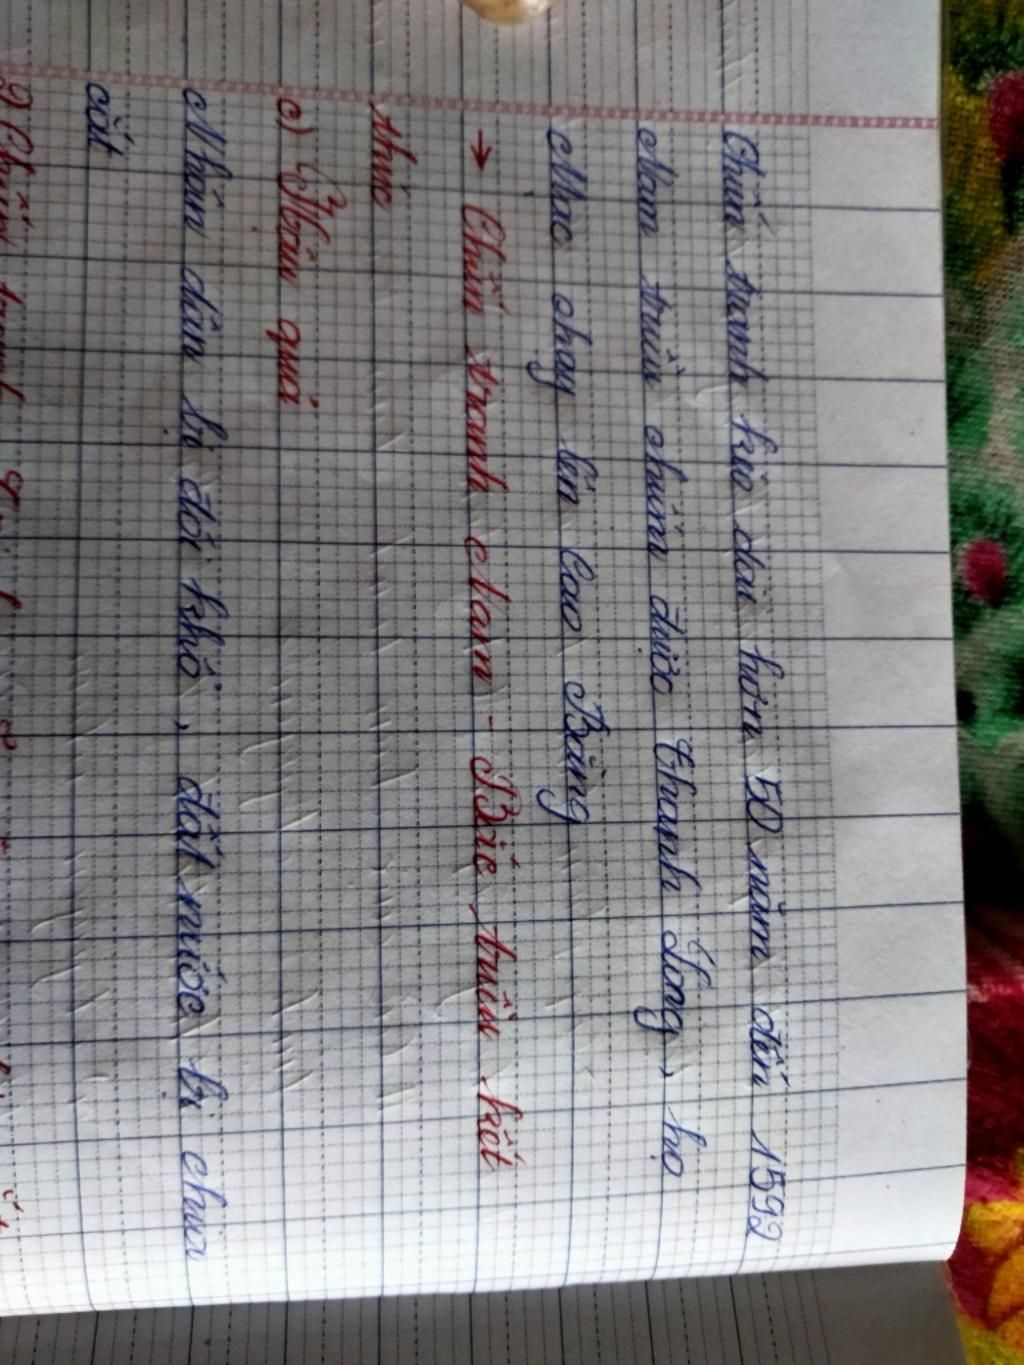 Chiến tranh kéo dài hơn 50 năm đến 1592
Nam triều chiếm được Thanh Long, họ
Mạc chạy lên Cao Bằng
→ Chiến tranh Nam - Bắc triều kết
thúc
c) Hậu quả
Nhân dân bị đói khổ, đất nước bị chia
cắt
Chiến tranh